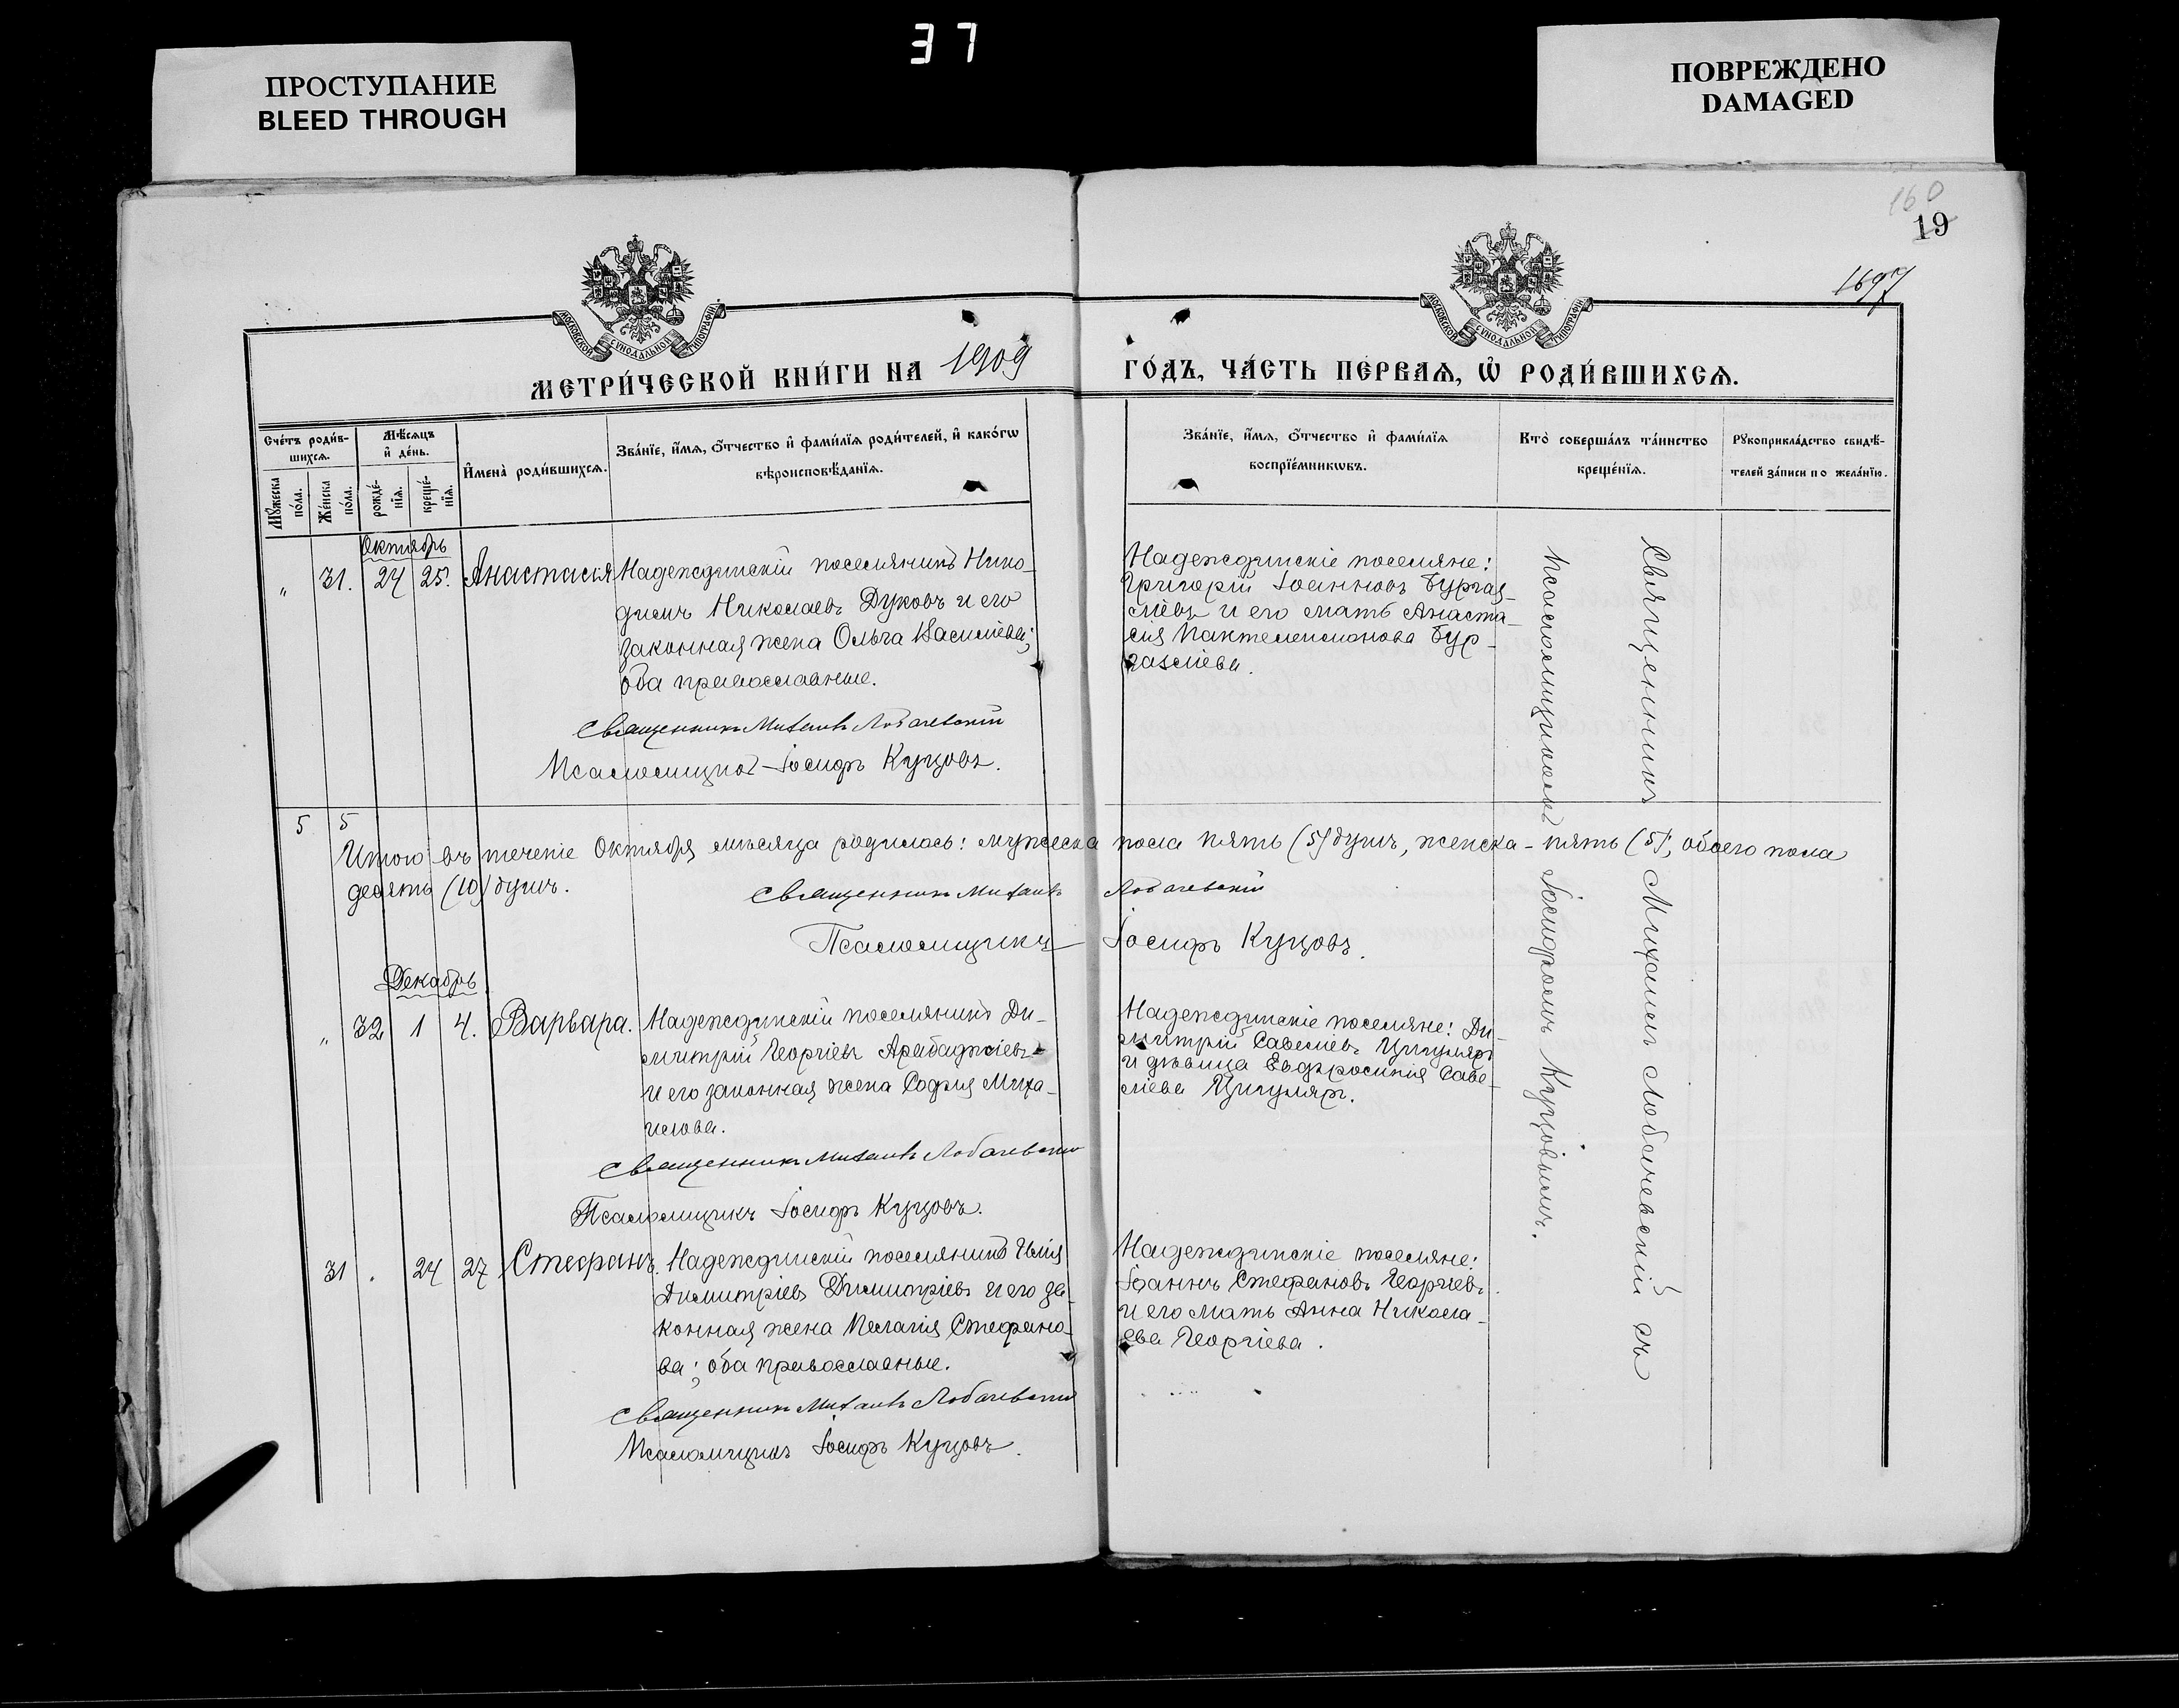 37
ПРОСТУПАНИЕ
BLEED THROUGH
ПОВРЕЖДЕНО
DAMAGED
160
19
1697
МОСКОВСКОЙ СѴНОДАЛЬНОЙ ТИПОГРАФІИ
МОСКОВСКОЙ СѴНОДАЛЬНОЙ ТИПОГРАФІИ
МЕТРИ́ЧЕСКОЙ КНИ́ГИ НА 1909 ГО́ДЪ, ЧА́СТЬ ПЕ́РВАѦ, Ѽ РОДИ́ВШИХСѦ.
Сче́тъ роди́в-
шихсѧ.
Мꙋ́жеска по́ла.
Же́нска по́ла.
Мѣ́сѧцъ
и҆ де́нь.
рожде́-нїѧ.
креще́-нїѧ.
И҆мена̀ роди́вшихсѧ.
Зва́нїе, и҆́мѧ, ѻ҆́тчество и҆ фами́лїѧ роди́телей, и҆ како́гѡ
вѣроисповѣ́данїѧ.
Зва́нїе, и҆́мѧ, ѻ҆́тчество и҆ фами́лїѧ
воспрїе́мникѡвъ.
Кто̀ соверша́лъ та́инство
креще́нїѧ.
Рꙋкоприкла́дство свидѣ́-
телей за́писи по жела́нїю.
Октябрь
" 31. 24 25. Анастасія
Надеждинскій поселянинъ Нико-
димъ Николаевъ Дуковъ и его
законная жена Ольга Василіева;
оба православные.
Священникъ Михаилъ Лобачевскій
Псаломщикъ Іосифъ Куцовъ.
Надеждинскіе поселяне:
Григорій Іоанновъ Бургаз-
ліевъ и его мать Анаста-
сія Пантелеимонова Бур-
газліева.
5 5
Итого въ теченіе Октября мѣсяца родилось: мужеска пола пять (5) душъ, женска - пять (5), обоего пола
десять (10) душъ.
Священникъ Михаилъ Лобачевскій
Псаломщикъ Іосифъ Куцовъ.
Декабрь
" 32 1 4. Варвара.
Надеждинскій поселянинъ Ди-
митрій Георгіевъ Арабаджіевъ
и его законная жена Софія Миха-
илова.
Священникъ Михаилъ Лобачевскій
Псаломщикъ Іосифъ Куцовъ.
Надеждинскіе поселяне: Ди-
митрій Савеліевъ Цигуляръ
и дѣвица Евфросинія Саве-
ліева Цигуляръ.
31 . 24 27 Стефанъ.
Надеждинскій поселянинъ Илія
Димитріевъ Димитріевъ и его за-
конная жена Пелагія Стефано-
ва; оба православные.
Священникъ Михаилъ Лобачевскій
Псаломщикъ Іосифъ Куцовъ.
Надеждинскіе поселяне:
Іоаннъ Стефановъ Георгіевъ
и его мать Анна Никола-
ева Георгіева.
Священникъ Михаилъ Лобачевскій съ
псаломщикомъ Іосифомъ Куцовымъ.